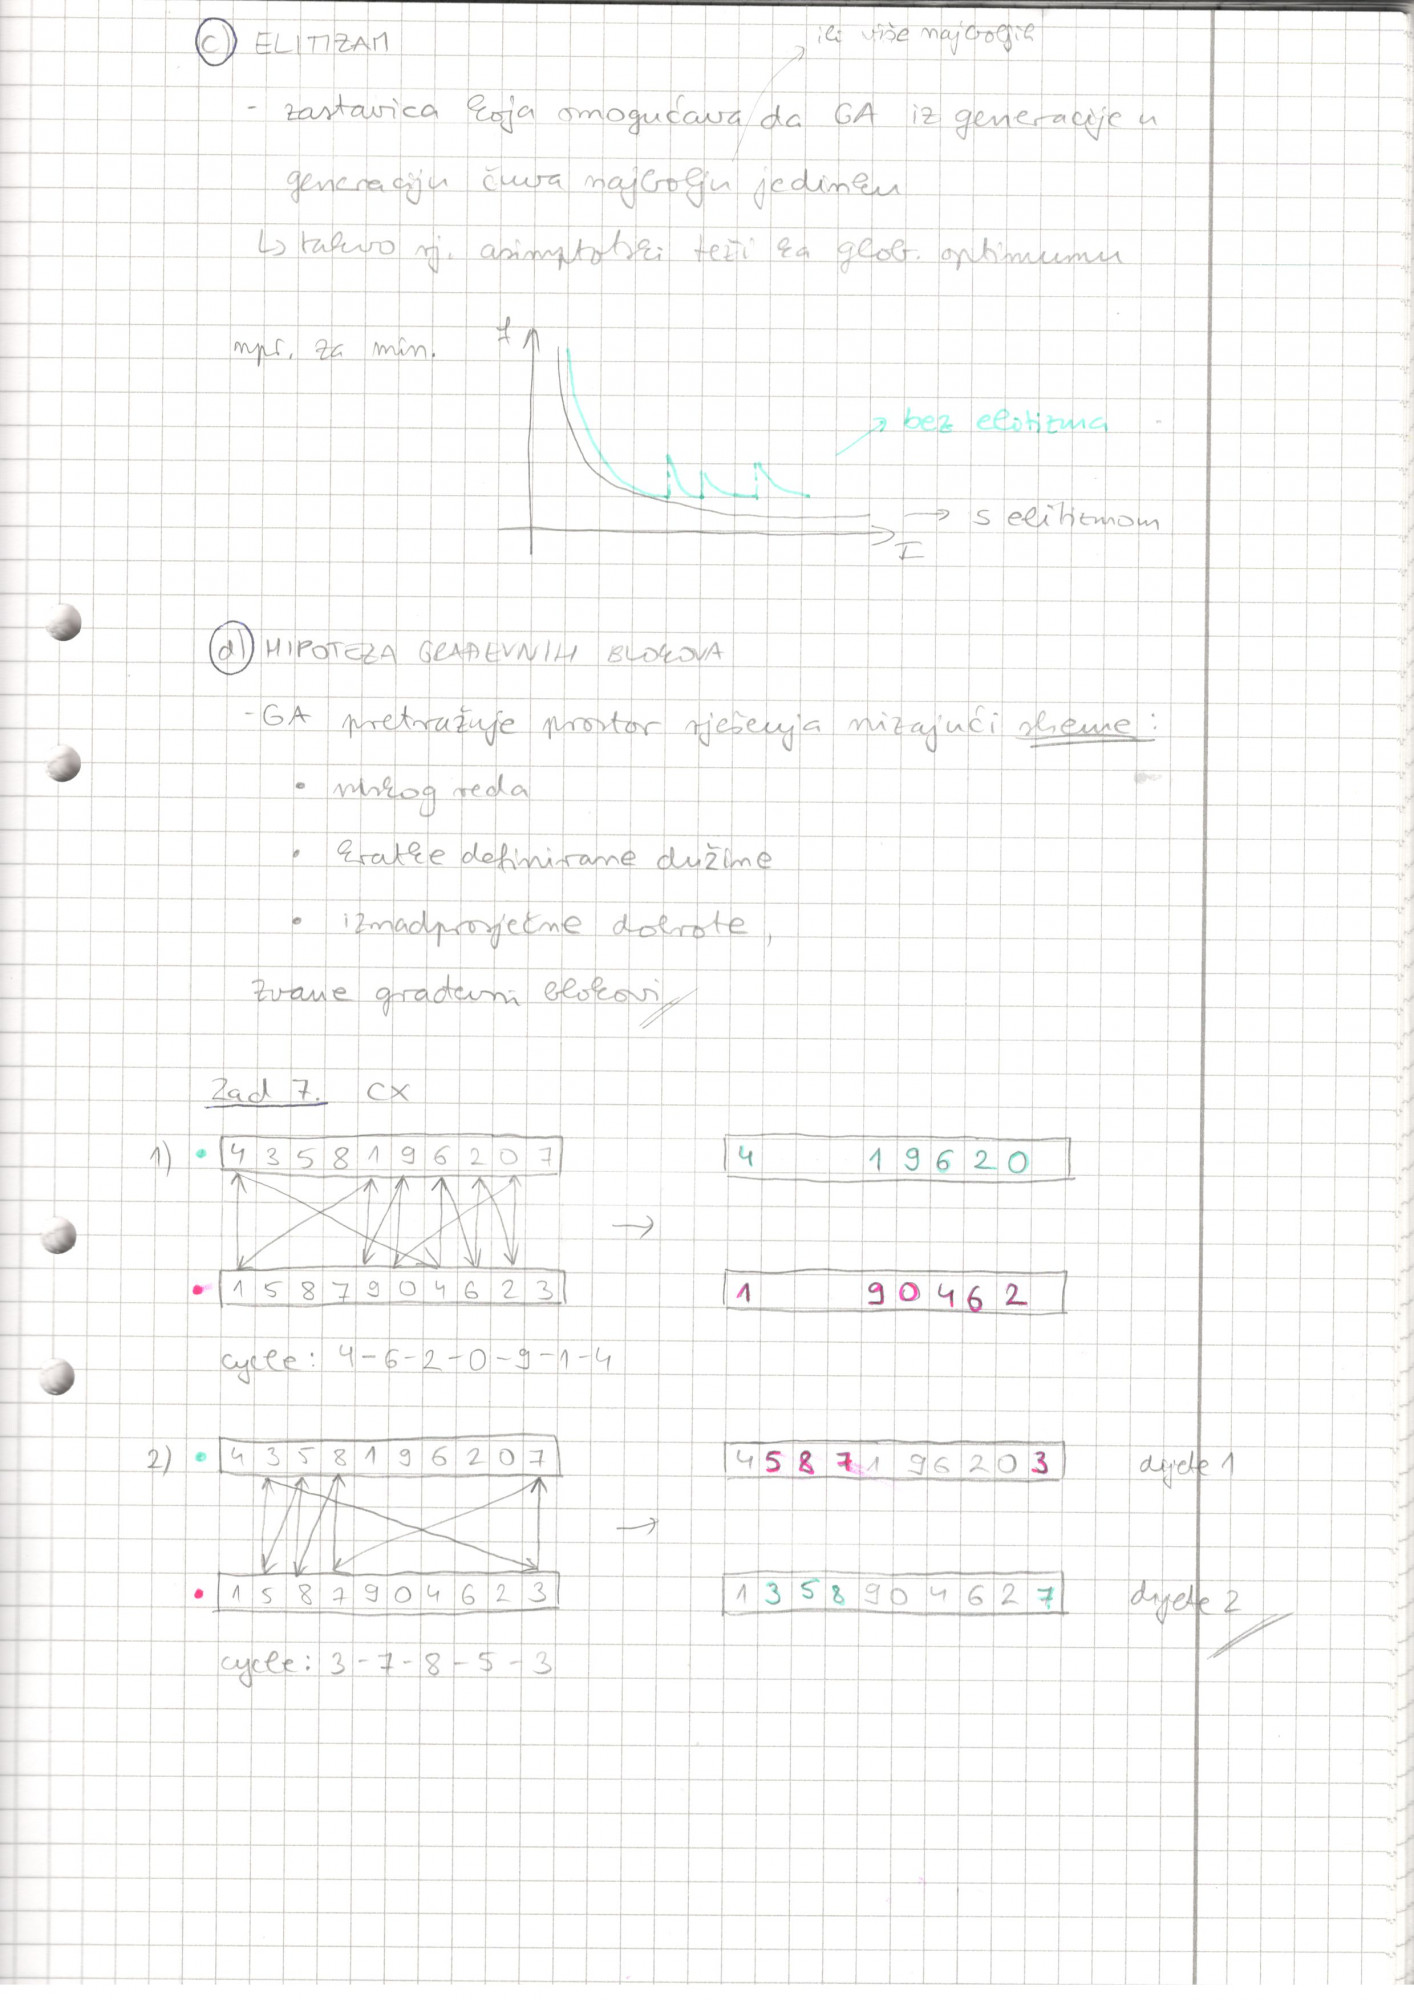 c) ELITIZAM
ili više najboljih
- zastavica koja omogućava da GA iz generacije u
generaciju čuva najbolju jedinku
↳ takvo rj. asimptotski teži ka glob. optimumu
npr. za min.
f
bez elitizma
s elitizmom
I
d) HIPOTEZA GRAĐEVNIH BLOKOVA
- GA pretražuje prostor rješenja nizajući sheme:
• niskog reda
• kratke definirane dužine
• iznadprosječne dobrote,
zvane građevni blokovi //
Zad 7. CX
1) • 4 3 5 8 1 9 6 2 0 7
4 1 9 6 2 0
→
• 1 5 8 7 9 0 4 6 2 3
1 9 0 4 6 2
cycle: 4-6-2-0-9-1-4
2) • 4 3 5 8 1 9 6 2 0 7
4 5 8 7 1 9 6 2 0 3 dijete 1
→
• 1 5 8 7 9 0 4 6 2 3
1 3 5 8 9 0 4 6 2 7 dijete 2 //
cycle: 3-7-8-5-3